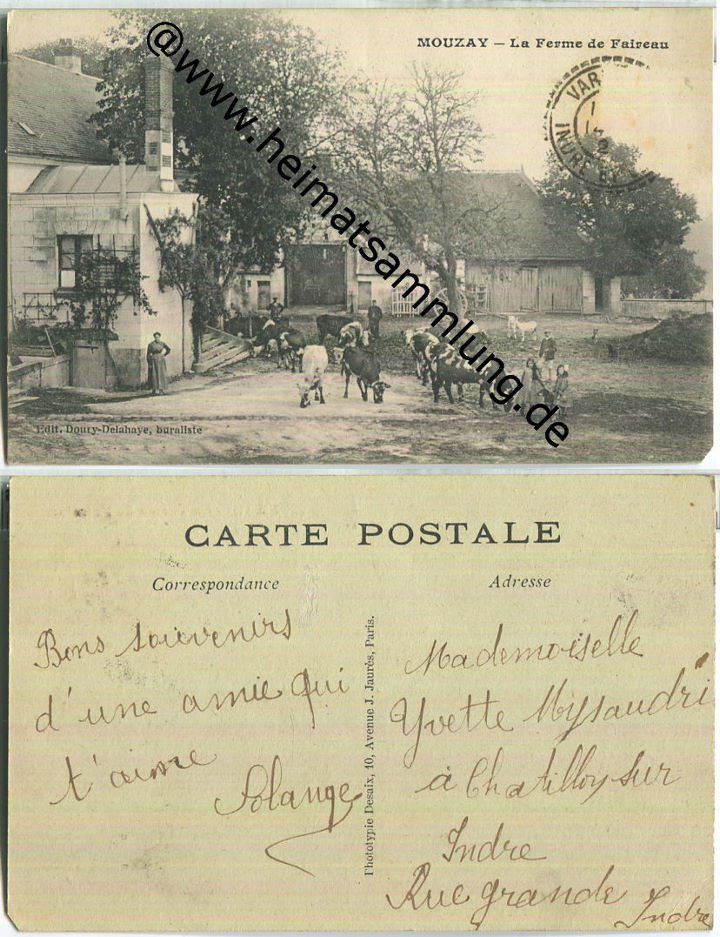 MOUZAY — La Ferme de Faireau
VAR
INDRE
@www.heimatsammlung.de
Edit. Doury-Delahaye, buraliste
CARTE POSTALE
Correspondance
Adresse
Bons souvenirs
d'une amie qui
t'aime
Solange
Phototypie Desaix, 10, Avenue J. Jaurès, Paris.
Mademoiselle
Yvette Mysaudri
à Chatillon sur
Indre
Rue grande
Indre